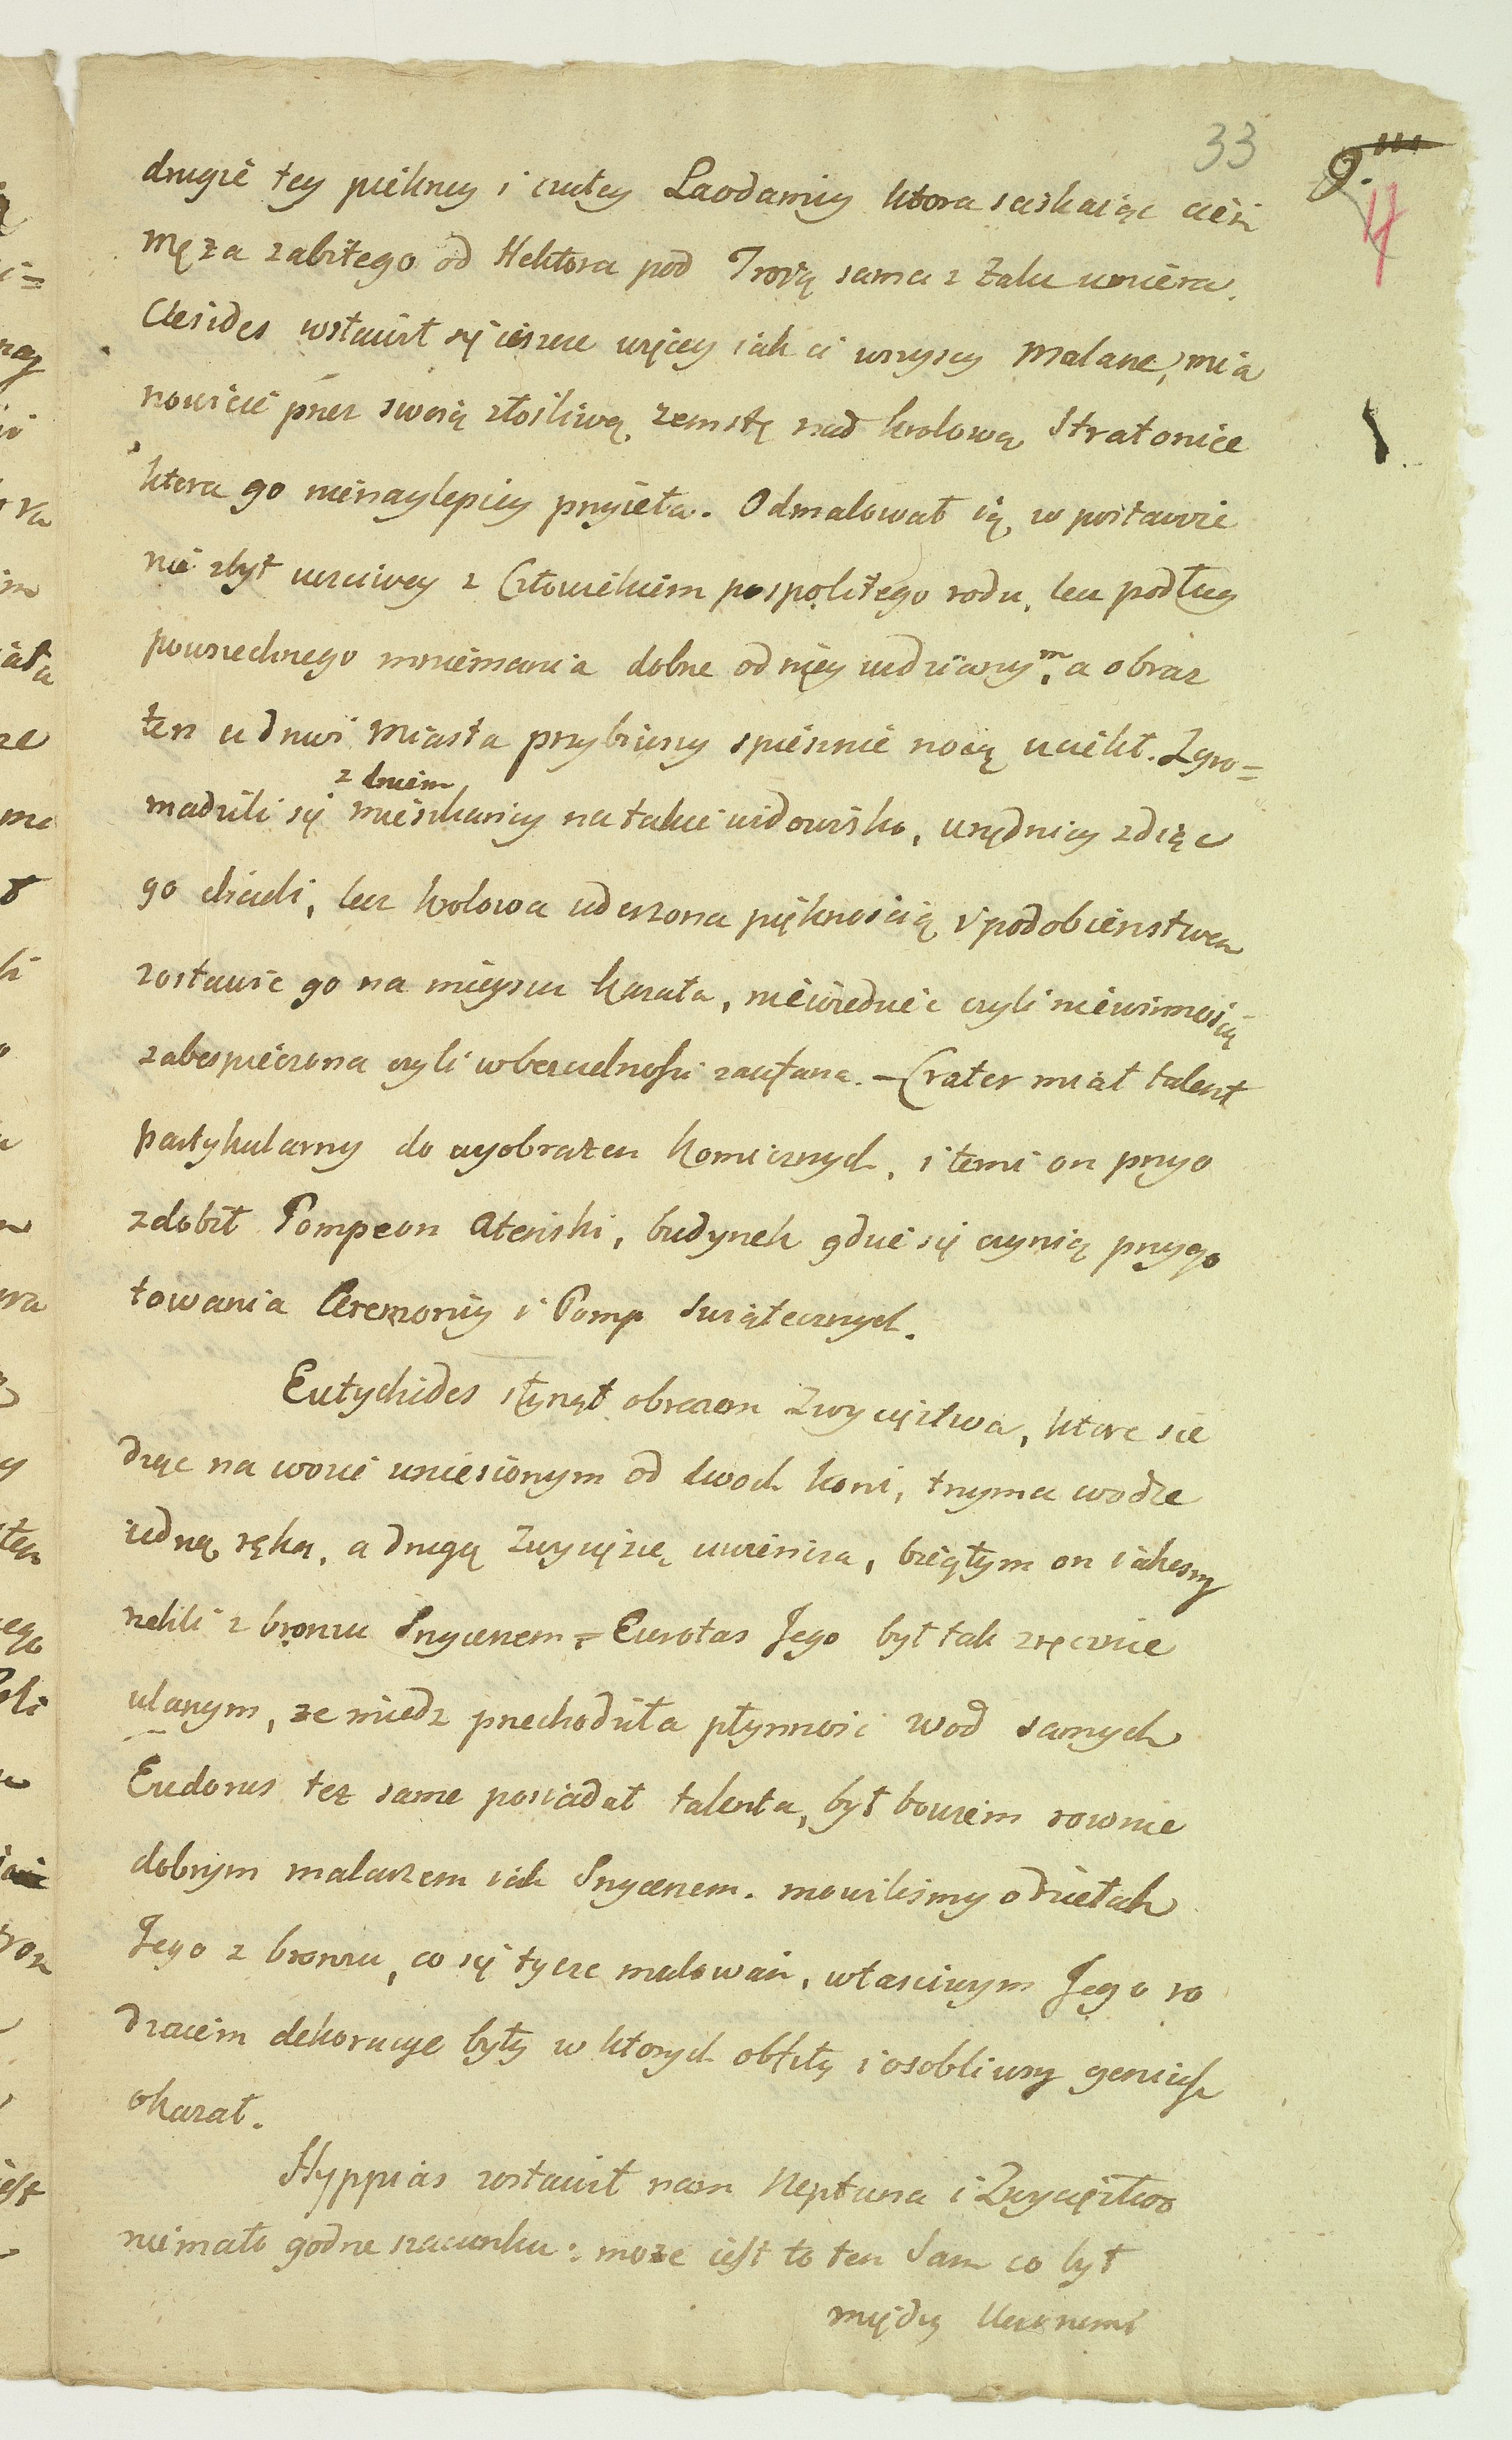 33
9.
4
drugie tey piękney i czułey Laodamiy ktora sciskaiąc cień
męża zabitego od Hektora pod Troją sama z żalu umiera.
Clesides wsławił się ieszcze więcey iak ci wszyscy Malarze, mia
nowicie przez swoią złośliwą zemstę nad krolową Stratonice
ktora go nienaylepiey przyięła. Odmalował ią w postawie
nie zbyt ucciwey z Człowiekiem pospolitego rodu, lecz podług
powszechnego mniemania dobrze od niey widzianym, a obraz
ten u drzwi Miasta przybiwszy spiesznie nocą uciekł. Zgro=
z dniem
madzili się mieszkańcy na takie widowisko, urzędnicy zdiąć
go chcieli, lecz krolowa uderzona pięknością i podobieństwem
zostawić go na mieyscu kazała, niewiedzieć czyli niewinnością
zabespieczona czyli w bezczelności zaufana. – Crater miał talent
partykularny do wyobrażeń komicznych, i temi on przyo
zdobił Pompeon Ateński, budynek gdzie się czynią przygo
towania Ceremoniy i Pomp Swiątecznych.
Eutychides słynął obrazem Zwycięztwa, ktore sie
dząc na wozie uniesionym od dwoch koni, trzyma wodze
iedną ręką, a drugą Zwycięzcę uwieńcza, biegłym on iakeśmy
rzekli z bronzu Snycerzem = Eurotas Jego był tak zręcznie
ulanym, ze miedz przechodziła płynność wod samych
Eudorus też same posiadał talenta, był bowiem rownie
dobrym malarzem iak Snycerzem. mowiliśmy o dziełach
Jego z bronzu, co się tycze malowań, właściwym Jego ro
dzaiem dekoracye były w ktorych obfity i osobliwszy geniusz
okazał.
Hyppias zostawił nam Neptuna i Zwycięztwo
niemało godne szacunku: może iest to ten Sam co był
między Uczonemi